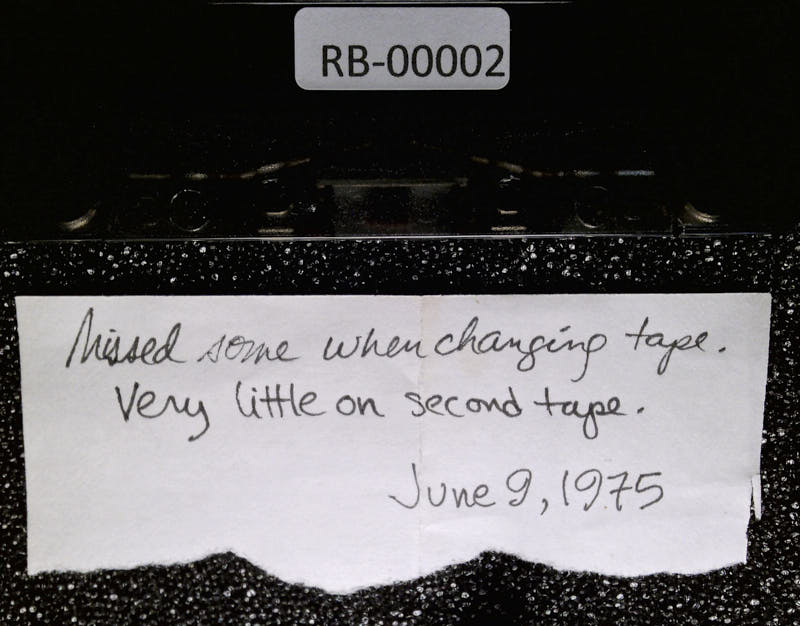 RB-00002
Missed some when changing tape.
Very little on second tape.
June 9, 1975